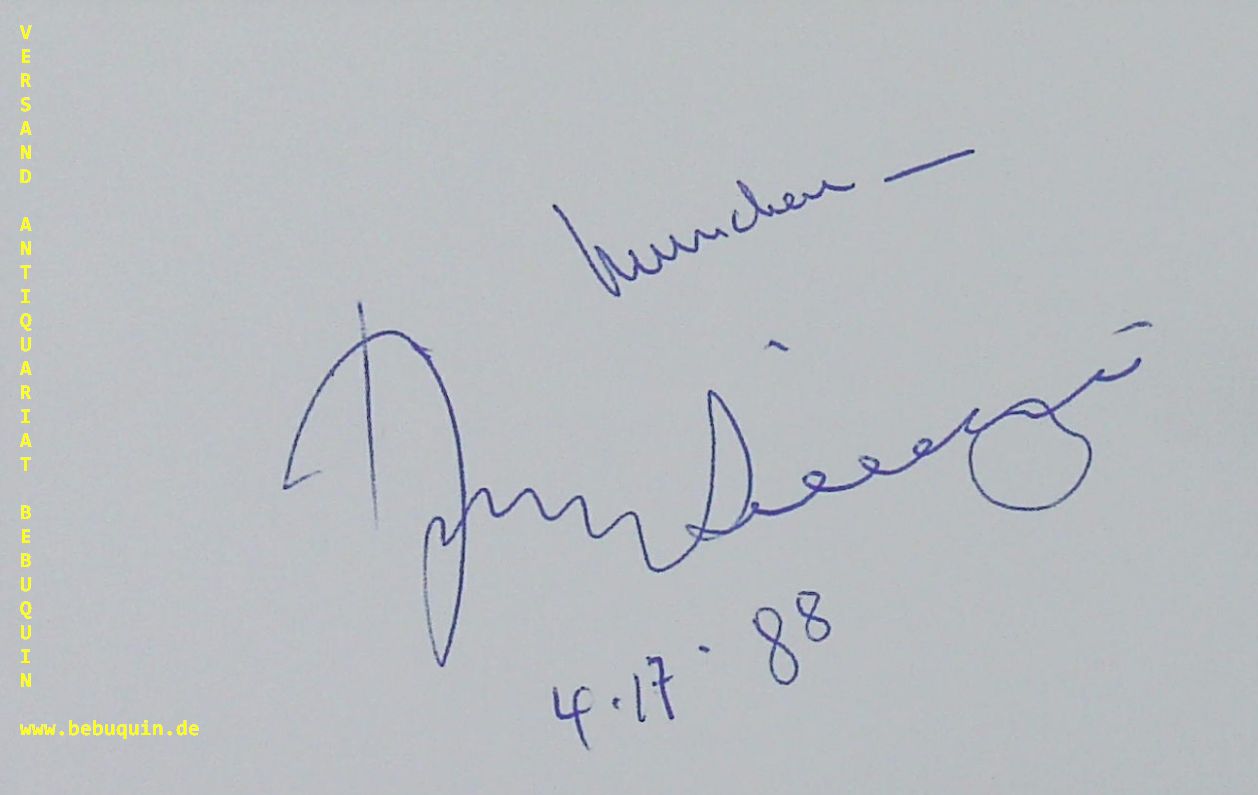 VERSAND ANTIQUARIAT BEBUQUIN
München —
4.17.88
www.bebuquin.de